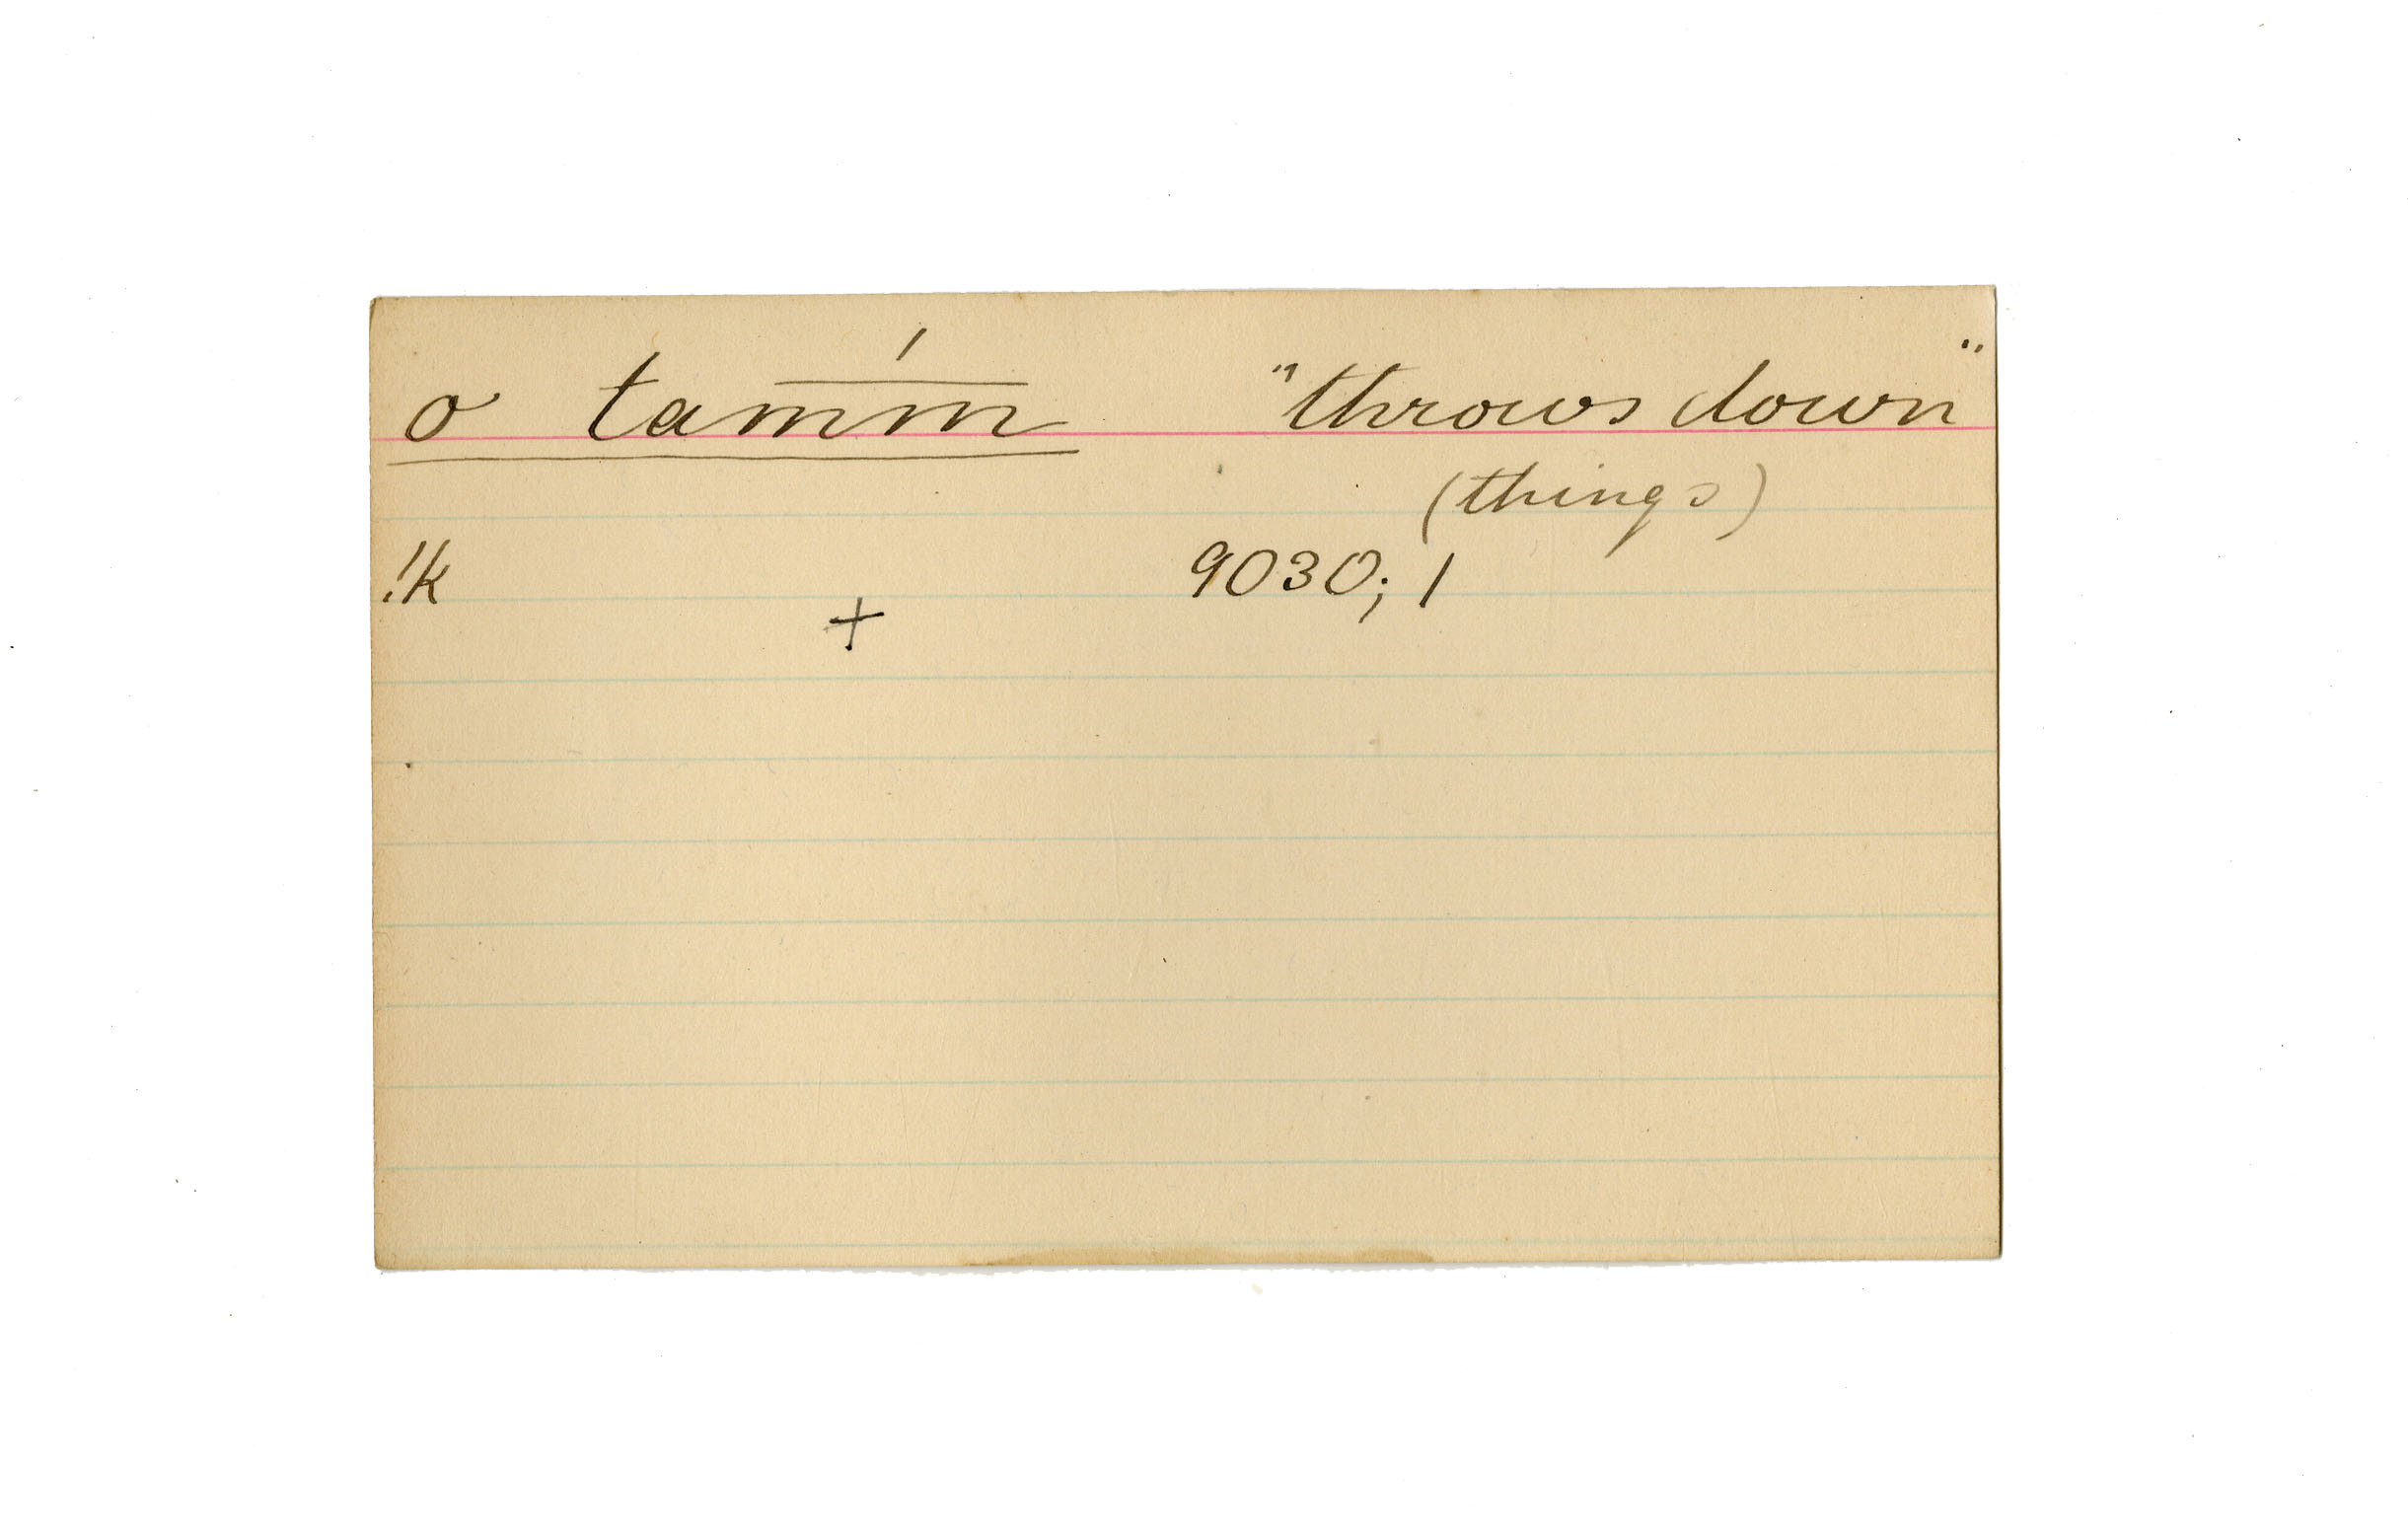 o tam̅́m̅ "throws down"
(things)
!k 9030; 1
+